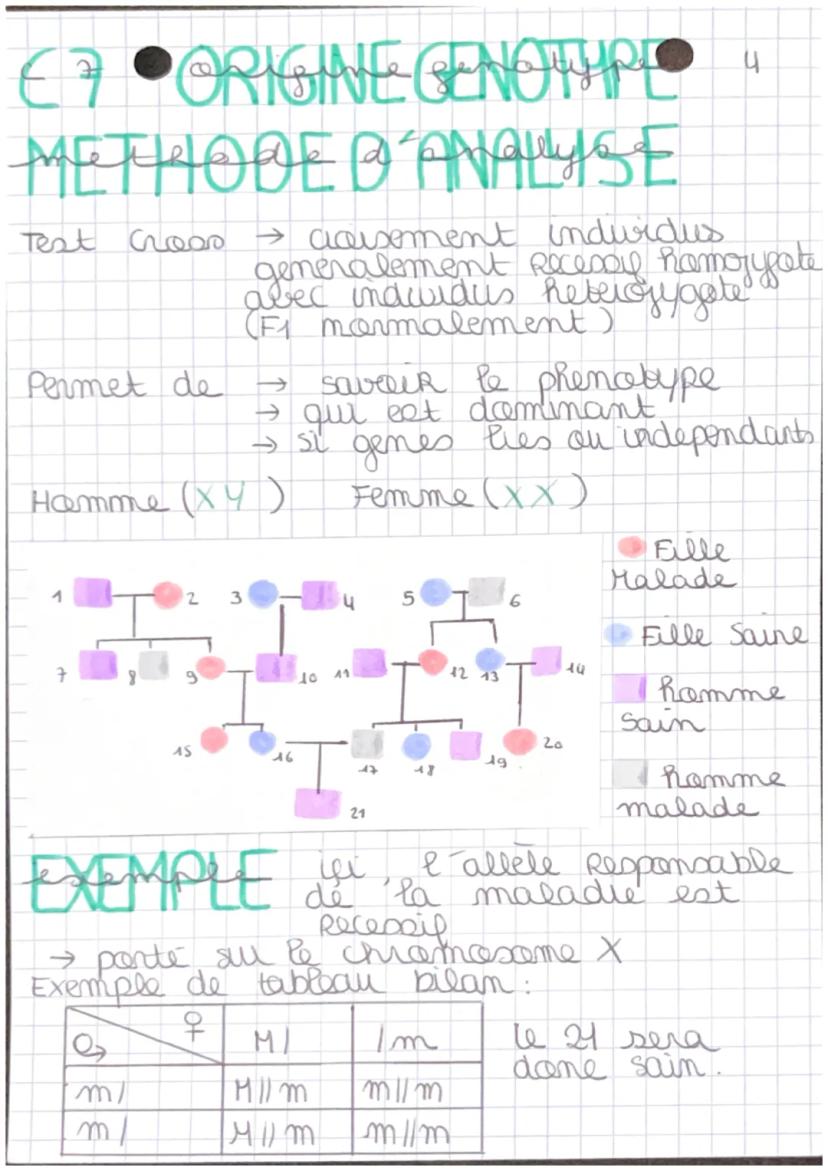 C7 ORIGINE GENOTYPE 4
METHODE D'ANALYSE
Test Cross → croisement individus
generalement recessif homozygote
avec individus heterozygote
(F1 normalement)
Permet de → savoir le phenotype
→ qui est dominant
→ si genes lies ou independants
Homme (XY) Femme (XX)
Fille
Malade
Fille Saine
homme
sain
homme
malade
1 2 3 4 5 6
7 8 9 10 11 12 13 14
15 16 17 18 19 20
21
EXEMPLE ici, l'allèle responsable
de la maladie est
recessif
→ porté sur le chromosome X
Exemple de tableau bilan :
♂ ♀ M/ /m
m/ M//m m//m
m/ M//m m//m
le 21 sera
donc sain.